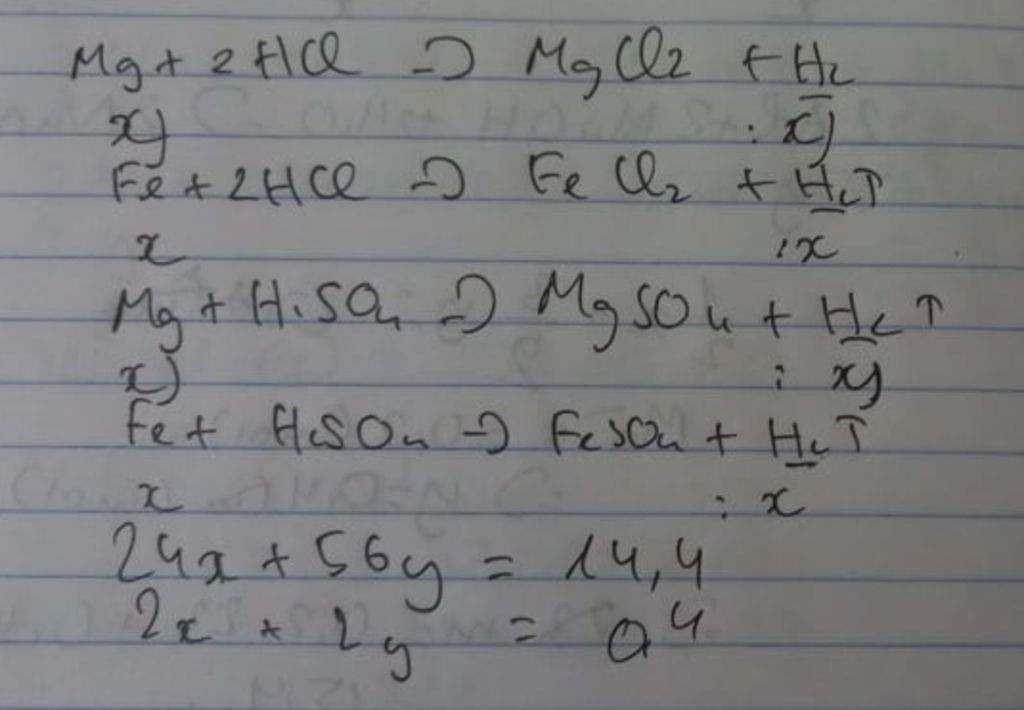 Mg + 2HCl => MgCl2 + H2
x) : x)
Fe + 2HCl => FeCl2 + H2↑
x : x
Mg + H2SO4 => MgSO4 + H2↑
x) : x)
Fe + H2SO4 => FeSO4 + H2↑
x : x
24x + 56y = 14,4
2x + 2y = 0,4